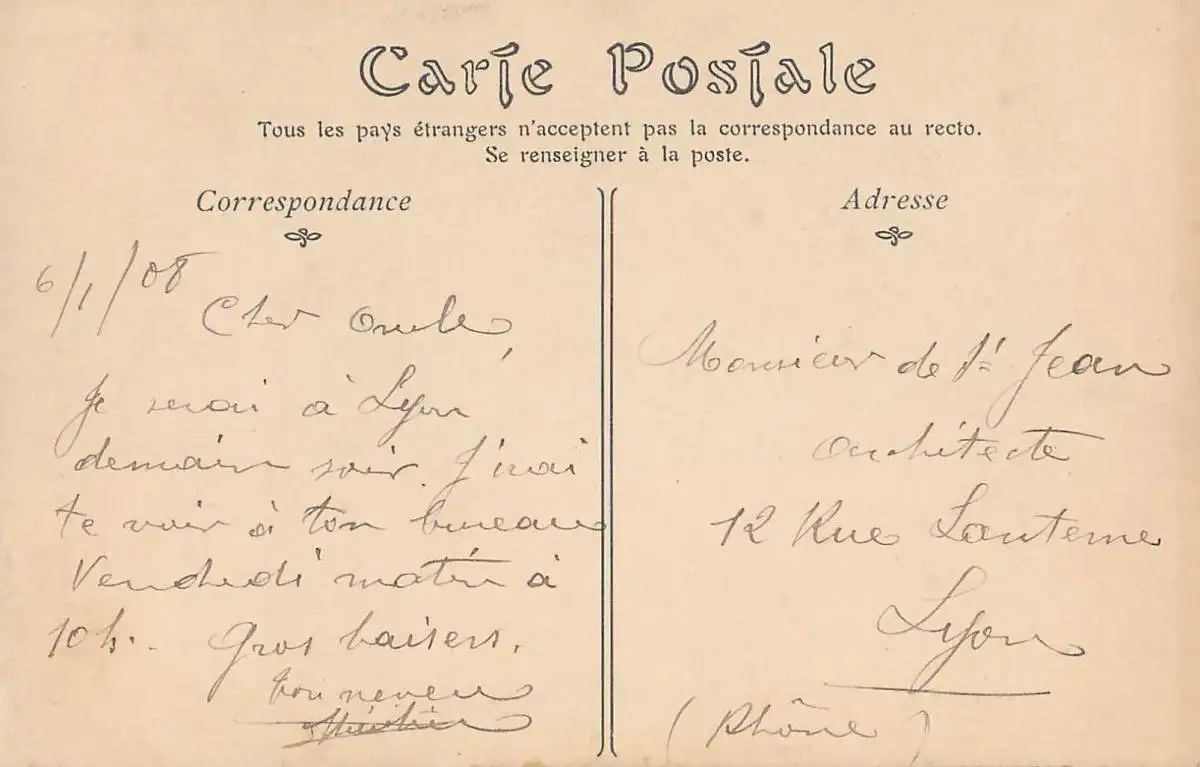 Carte Postale
Tous les pays étrangers n'acceptent pas la correspondance au recto.
Se renseigner à la poste.
Correspondance
6/1/08
Cher Oncle,
Je serai à Lyon
demain soir. J'irai
te voir à ton bureau
Vendredi matin à
10 h. Gros baisers.
ton neveu
Adresse
Monsieur de St Jean
architecte
12 Rue Lanterne
Lyon
(Rhône)